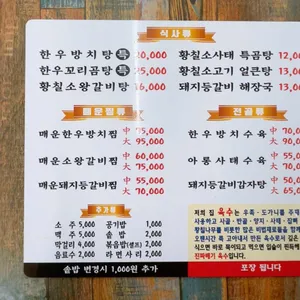 식사류
한우방치탕 특 20,000
한우꼬리곰탕 특 25,000
황칠소왕갈비탕 16,000
황칠소사태 특곰탕 12,00
황칠소고기 얼큰탕 13,00
돼지등갈비 해장국 13,00
매운찜류
매운한우방치찜 中 75,000
大 95,000
매운소왕갈비찜 中 60,000
大 80,000
매운돼지등갈비찜 中 55,000
大 70,000
전골류
한우방치수육 中 70,0
大 90,0
아롱사태수육 中 55,0
大 65,0
돼지등갈비감자탕 中 50,0
大 65,0
추가류
소 주 5,000
맥 주 5,000
막걸리 4,000
음료수 2,000
공기밥 1,000
솥 밥 2,000
볶음밥(셀프) 2,000
라면사리 2,000
솥밥 변경시 1,000원 추가
저희 집 육수는
진짜배기 육수입니다.
포장 됩니다